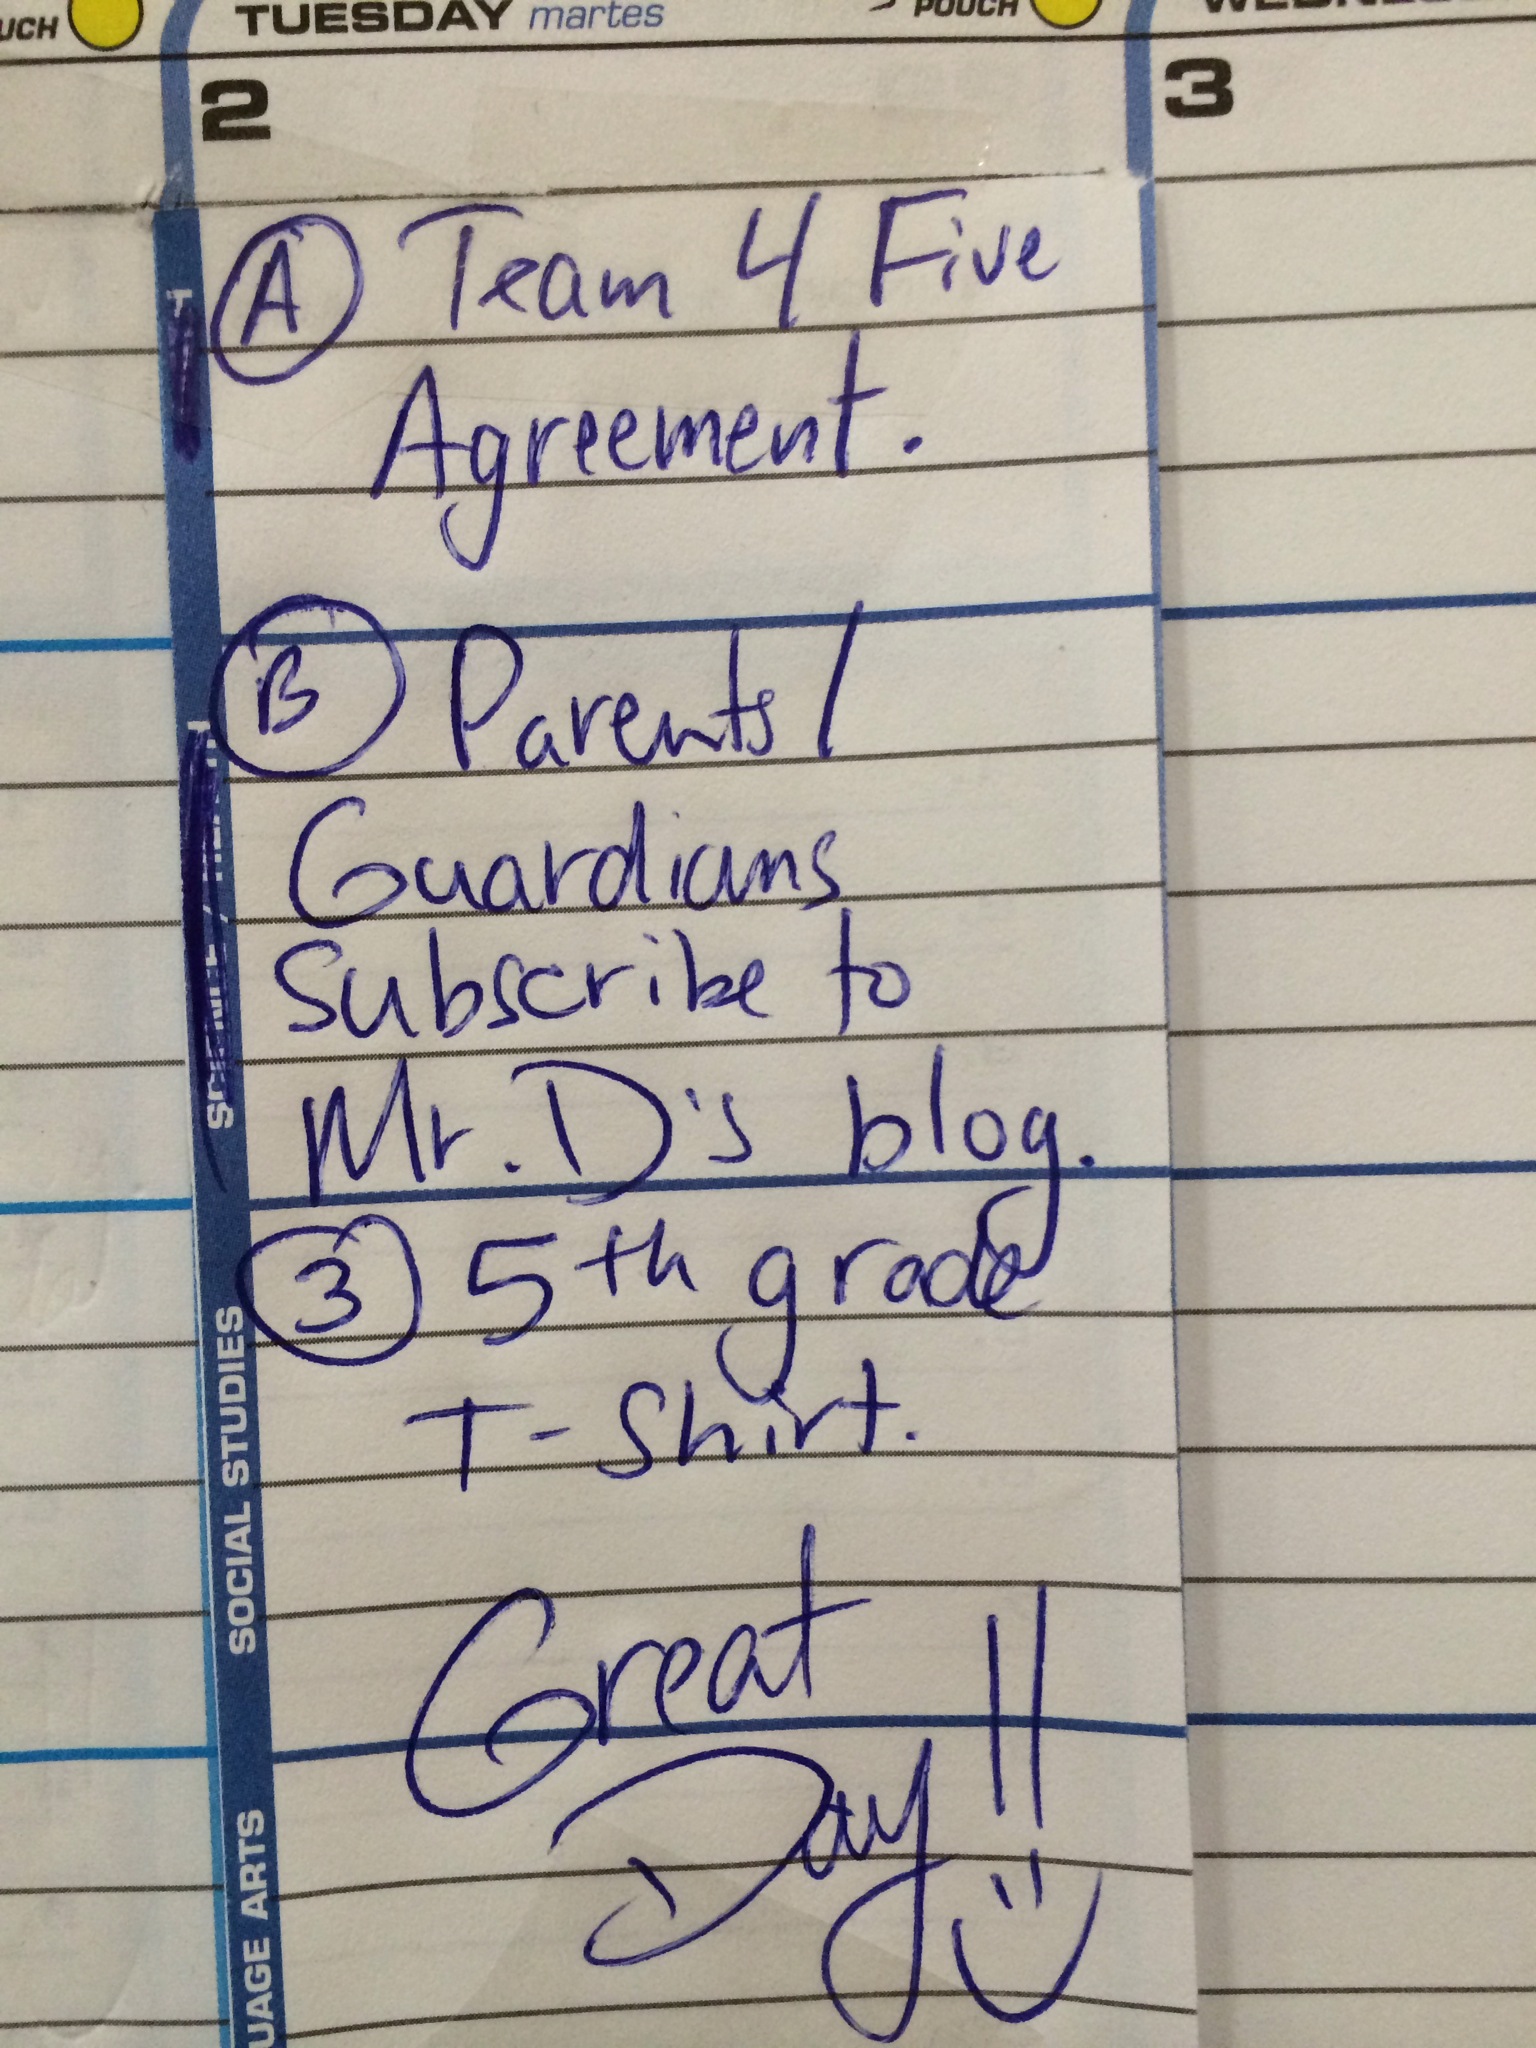 UCH
TUESDAY martes
POUCH
2
3
A Team 4 Five
Agreement.
B Parents/
Guardians
Subscribe to
Mr. D's blog.
3 5th grade
T-Shirt.
SOCIAL STUDIES
Great
Day!!
UAGE ARTS